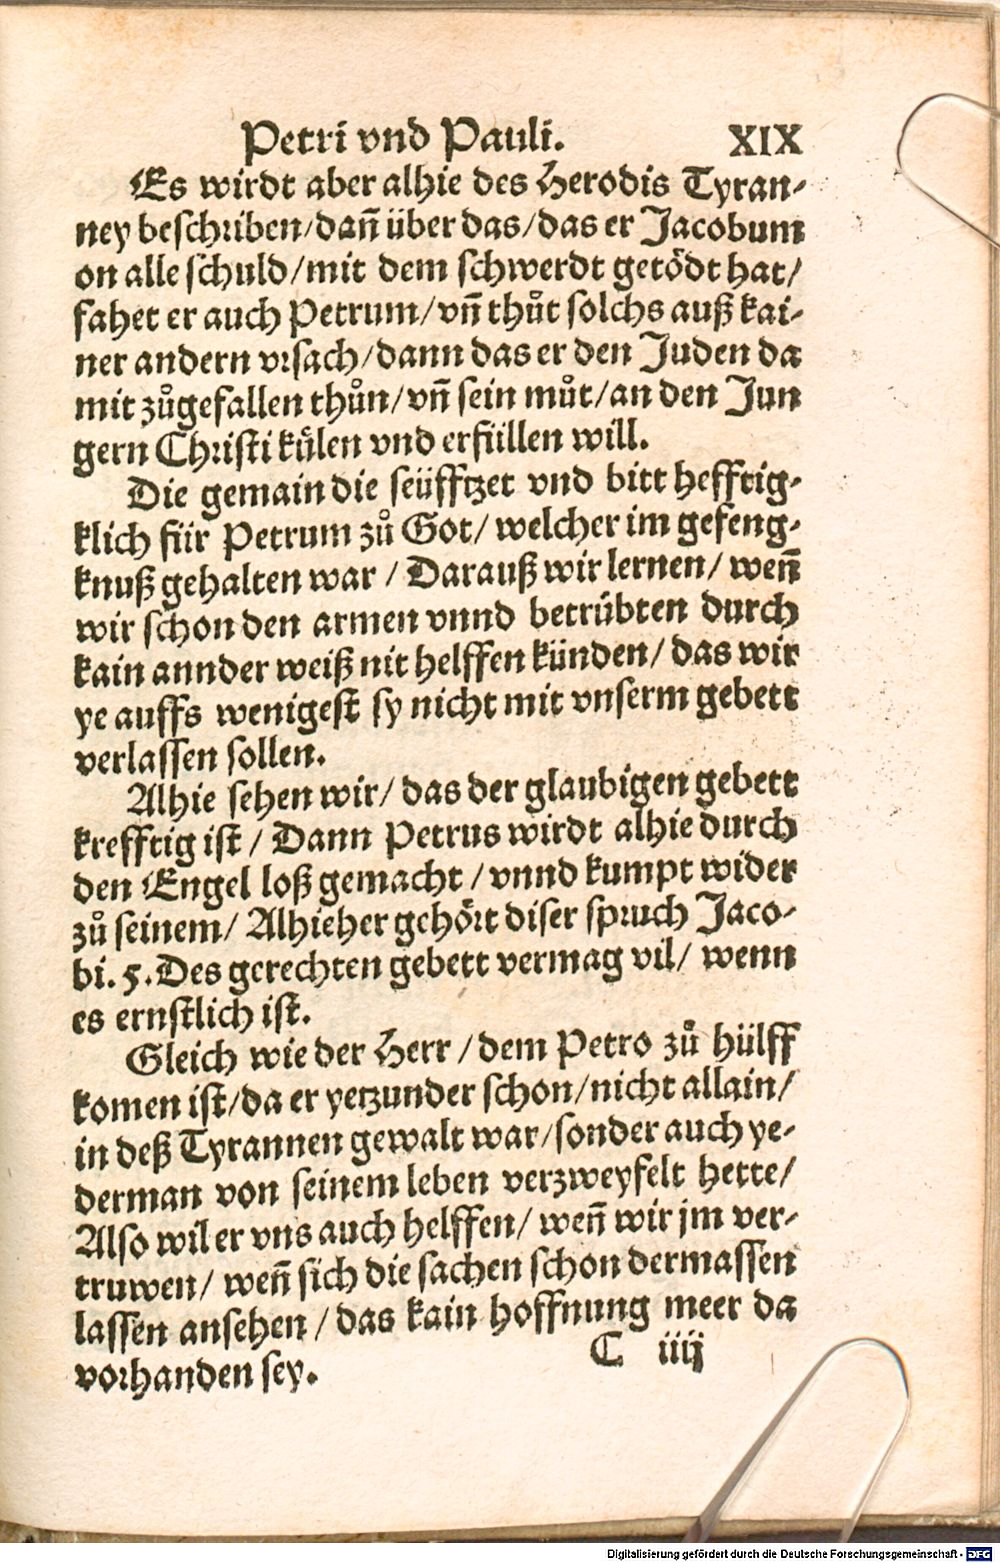 Petri vnd Pauli. XIX
Es wirdt aber alhie des Herodis Tyran-
ney beschriben/dañ über das/das er Jacobum
on alle schuld/mit dem schwerdt getödt hat/
fahet er auch Petrum/vñ thůt solchs auß kai-
ner andern vrsach/dann das er den Juden da
mit zůgefallen thůn/vñ sein můt/an den Jun
gern Christi külen vnd erfüllen will.
Die gemain die seüfftzet vnd bitt hefftig-
klich für Petrum zů Got/welcher im gefeng-
knuß gehalten war / Darauß wir lernen/ weñ
wir schon den armen vnnd betrübten durch
kain annder weiß nit helffen künden/ das wir
ye auffs wenigest sy nicht mit vnserm gebett
verlassen sollen.
Alhie sehen wir/ das der glaubigen gebett
krefftig ist / Dann Petrus wirdt alhie durch
den Engel loß gemacht / vnnd kumpt wider
zů seinem/ Alhieher gehört diser spruch Jaco-
bi. 5. Des gerechten gebett vermag vil/ wenn
es ernstlich ist.
Gleich wie der Herr / dem Petro zů hülff
komen ist/da er yetzunder schon/nicht allain/
in deß Tyrannen gewalt war/sonder auch ye-
derman von seinem leben verzweyfelt hette/
Also wil er vns auch helffen/ weñ wir jm ver-
truwen/ weñ sich die sachen schon dermassen
lassen ansehen / das kain hoffnung meer da
vorhanden sey.
C iiij
Digitalisierung gefördert durch die Deutsche Forschungsgemeinschaft - DFG